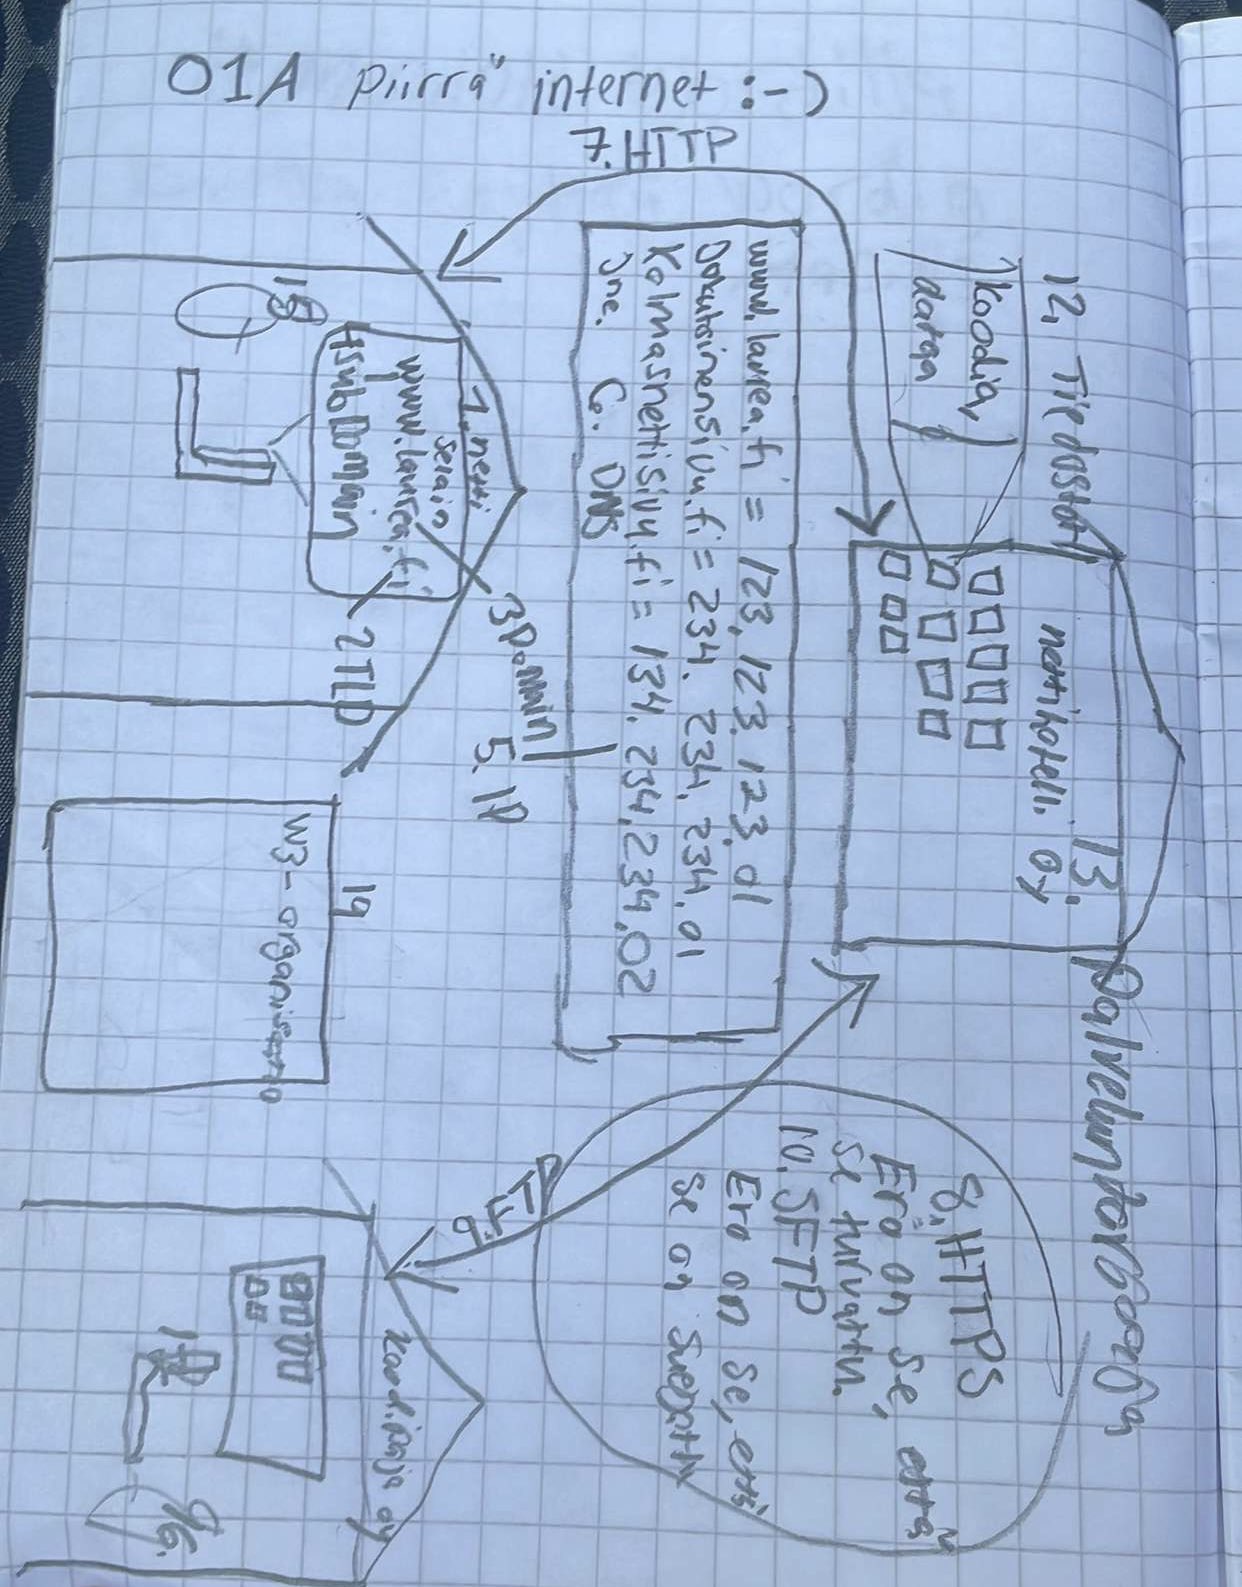 01A Piirrä "internet :-)
7. HTTP
12. Tiedostot
Koodia,
dataa
13.
nettihotelli Oy
Palveluntarjoaja
8. HTTPS
Ero on se, että
se turvattu.
10. SFTP
Ero on se, että
se on
www.laurea.fi = 123.123.123.01
Jokutoinensivu.fi = 234.234.234.01
Kolmasnettisivu.fi = 134.234.234.02
Jne. 6. DNS
3 Domain
5. IP
9. FTP
1. netti
selain
www.laurea.fi
4 subDomain
2 TLD
19
W3-organisaatio
Koodipaja oy